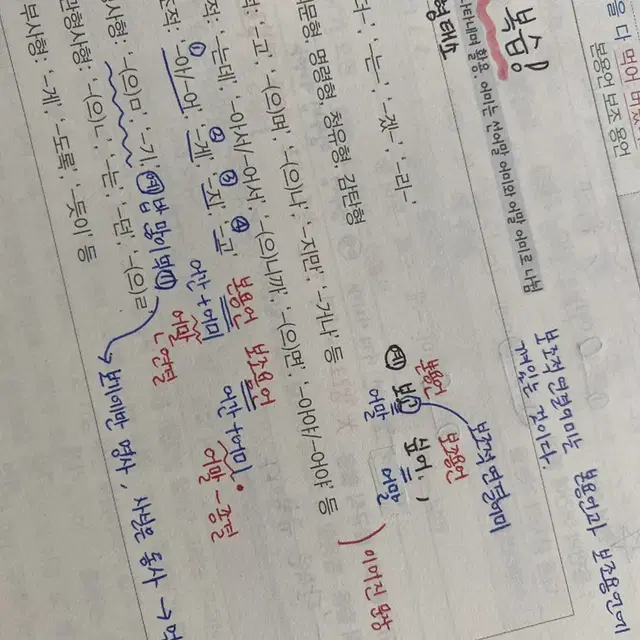 을 다 먹어 버렸
본용언 보조 용언
복습!
형태소
나타내며 활용. 어미는 선어말 어미와 어말 어미로 나뉨
'-는-', '-겠-', '-리-'
명령형, 청유형, 감탄형
'-고', '-(으)며', '-(으)나', '-지만', '-거나' 등
'-는데', '-아서/-어서', '-(으)니까', '-(으)면', '-아야/-어야' 등
① ② ③ ④
'-아/-어', '-게', '-지', '-고'
'-(으)ㅁ', '-기'
'-(으)ㄴ', '-는', '-던', '-(으)ㄹ'
부사형: '-게', '-도록', '-듯이' 등
보조적 연결어미는 본용언과 보조용언에
것이다.
보조적 연결어미
본용언 보조용언
예 보고 싶어,
어말 어말
이어진 문장
본용언 보조용언
어간+어미 어간+어미
어말 - 연결 어말 - 종결
예 밥 많이
보기에만 명사, 사실은 동사 →